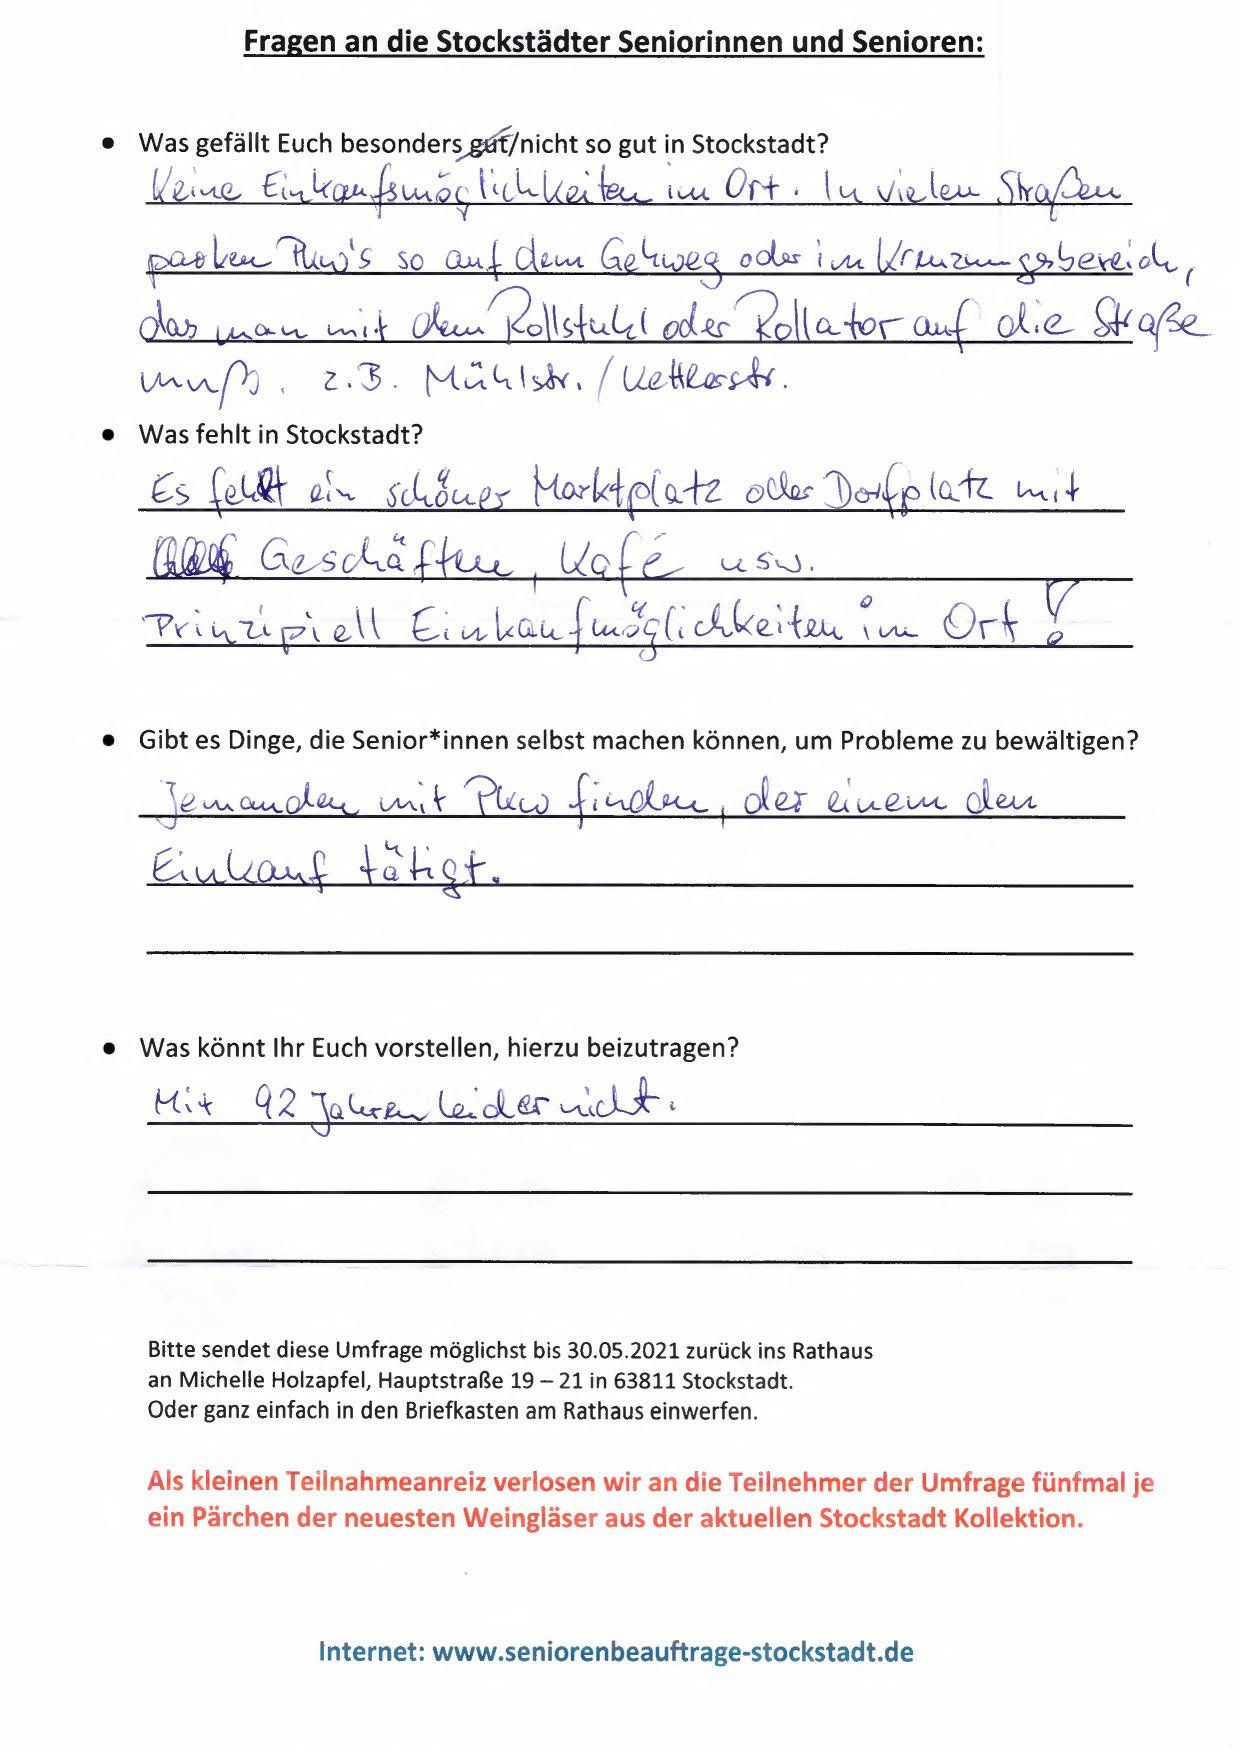 Fragen an die Stockstädter Seniorinnen und Senioren:
• Was gefällt Euch besonders gut/nicht so gut in Stockstadt?
Keine Einkaufsmöglichkeiten im Ort. In vielen Straßen
parken Pkw's so auf dem Gehweg oder im Kreuzungsbereich,
das man mit dem Rollstuhl oder Rollator auf die Straße
muß. z.B. Mühlstr./Kettlerstr.
• Was fehlt in Stockstadt?
Es fehlt ein schöner Marktplatz oder Dorfplatz mit
Geschäften, Kafé usw.
Prinzipiell Einkaufmöglichkeiten im Ort!
• Gibt es Dinge, die Senior*innen selbst machen können, um Probleme zu bewältigen?
Jemanden mit Pkw finden, der einem den
Einkauf tätigt.
• Was könnt Ihr Euch vorstellen, hierzu beizutragen?
Mit 92 Jahren leider nicht.
Bitte sendet diese Umfrage möglichst bis 30.05.2021 zurück ins Rathaus
an Michelle Holzapfel, Hauptstraße 19 – 21 in 63811 Stockstadt.
Oder ganz einfach in den Briefkasten am Rathaus einwerfen.
Als kleinen Teilnahmeanreiz verlosen wir an die Teilnehmer der Umfrage fünfmal je
ein Pärchen der neuesten Weingläser aus der aktuellen Stockstadt Kollektion.
Internet: www.seniorenbeauftrage-stockstadt.de